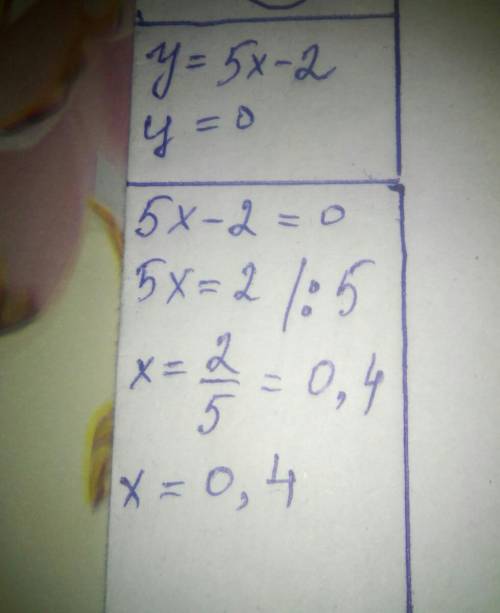 y = 5x - 2
y = 0
5x - 2 = 0
5x = 2 /: 5
x = 2/5 = 0,4
x = 0,4